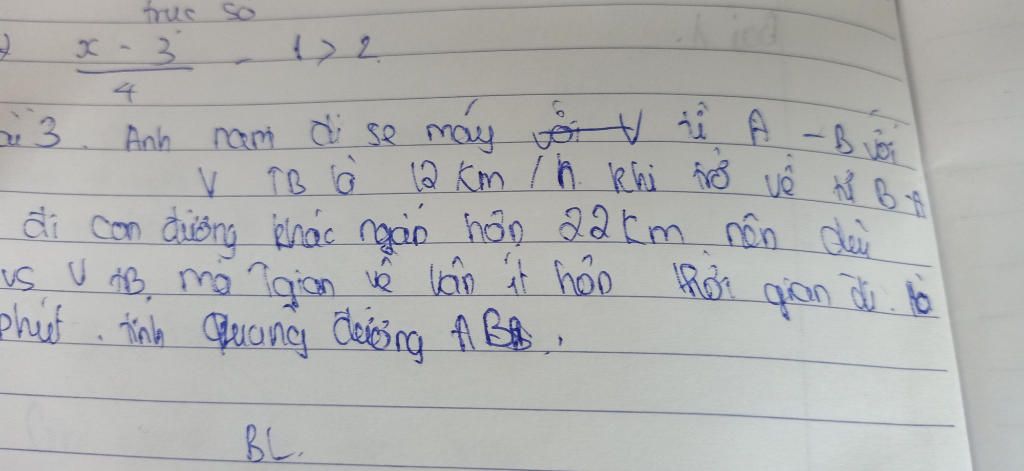 trục số
x - 3 / 4 - 1 > 2
3. Anh nam đi se máy từ A - B với
V TB là 12 km/h. khi trở về từ B-A
đi con đường khác ngắn hơn 22km nên dù
vs V tB, mà gian về vẫn ít hơn thời gian đi là
phút. tính Quang đường AB.
BL.